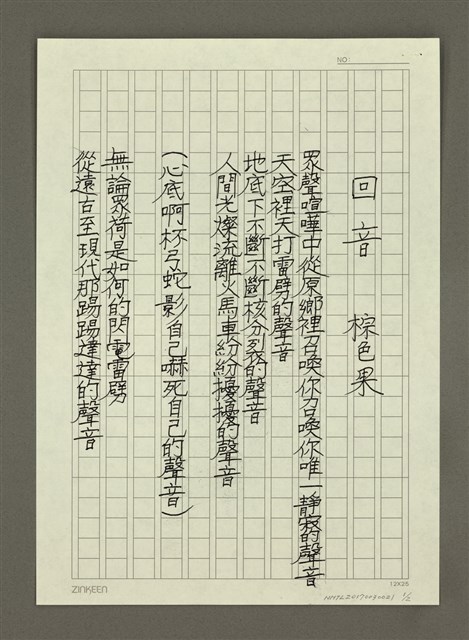 NO:
回音 棕色果
眾聲喧嘩中從原鄉裡召喚你召喚你唯一靜寂的聲音
天空裡天打雷劈的聲音
地底下不斷不斷核分裂的聲音
人間光燦流離火馬車紛紛擾擾的聲音
(心底啊杯弓蛇影自己嚇死自己的聲音)
無論眾荷是如何的閃電雷劈
從遠古至現代那踢踢躂達的聲音
ZINKEEN
12X25
1/2